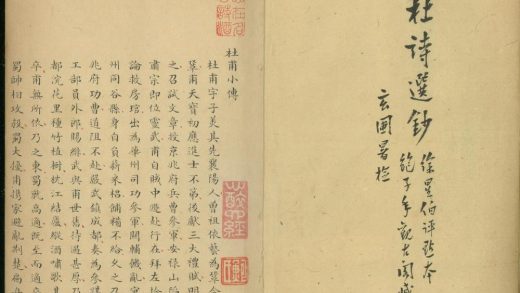 杜詩選鈔
徐星伯評點本
鮑子年觀古閣藏
玄圃署檢
杜甫小傳
杜甫字子美其先襄陽人曾祖依藝為鞏令
鞏甫天寶初應進士不第後獻三大禮賦明
之召試文章授京兆府兵曹參軍安祿山陷
肅宗即位靈武甫自賊中遯赴行在拜左拾
論救房琯出為華州司功參軍關輔饑亂寓
州同谷縣身自負薪采梠餔糒不給久之召
兆府功曹道阻不赴嚴武鎮成都奏為參謀
工部員外郎賜緋武與甫世舊待遇甚厚乃
都浣花里種竹植樹枕江結廬縱酒嘯歌其
卒甫無所依乃之東蜀就高適既至而適卒
蜀帥相攻殺蜀大擾甫攜家避亂荊楚扁舟